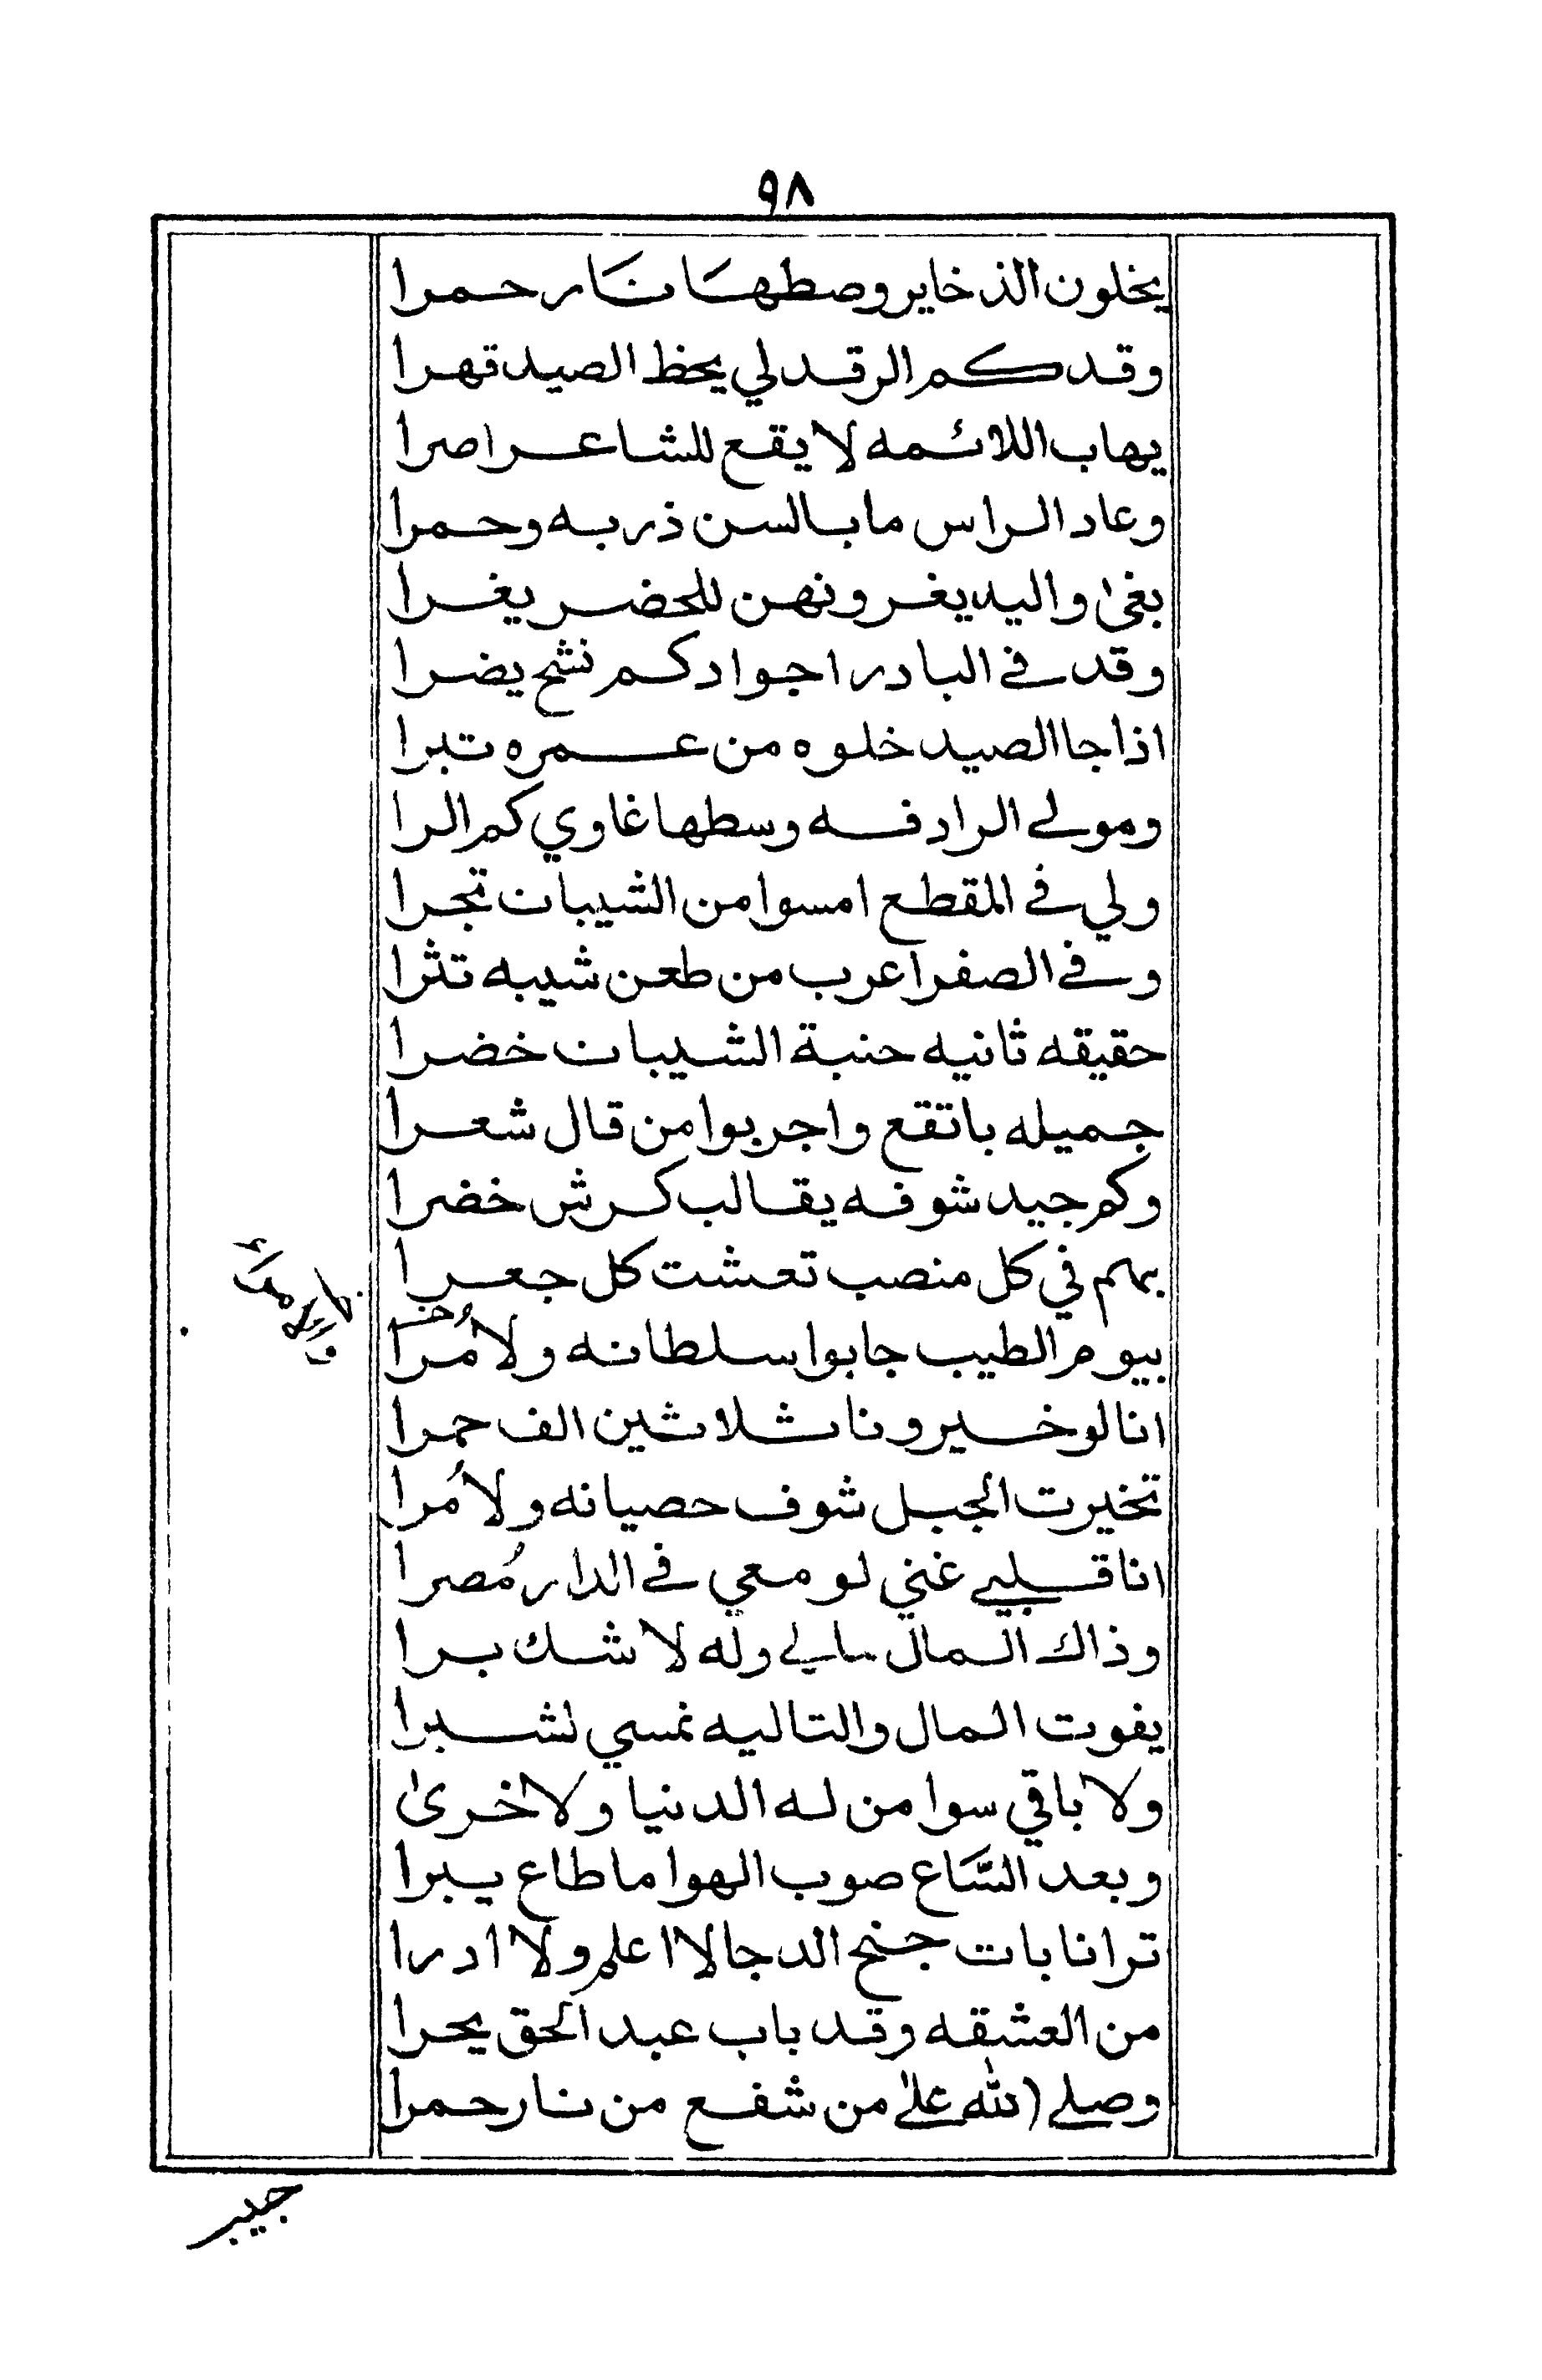 ٩٨
يخلون الذخاير وصطهَا نَار حمرا
وقدكم الرقد لي يحظ الصيد قهرا
يهاب اللائمه لا يقع للشاعر اصرا
وعاد الراس ما بالسن ذربه وحمرا
بغىٰ واليد يغرونهن للحضر يغرا
وقد في البادر اجواد كم نشح يضرا
اذا جا الصيد خلوه من عمره تبرا
ومولى الرادفه وسطها غاوي كم الرا
ولي في المقطع امسوا من الشيبات تجرا
وفي الصفرا عرب من طعن شيبه تثرا
حقيقه ثانيه حنبة الشيبات خضرا
جميله باتقع واجر بوا من قال شعرا
وكم جيد شوفه يقالب كرش خضرا
بهم في كل منصب تعشت كل جعرا
بيوم الطيب جابوا سلطانه ولا مُرا
انا لو خيرونا ثلاثين الف حمرا
تخيرت الجبل شوف حصيانه ولا مُرا
انا قلبي غني لو معي في الدار مُصرا
وذاك المال مالي وله لا شك برا
يفوت المال والتاليه نمسي لشبرا
ولا باقي سوا من له الدنيا ولاخرىٰ
وبعد السَّاع صوب الهوا ما طاع يبرا
ترانا بات جنح الدجا لا اعلم ولا ادرا
من العشقه وقد باب عبد الحق يحرا
وصلى الله علىٰ من شفع من نار حمرا